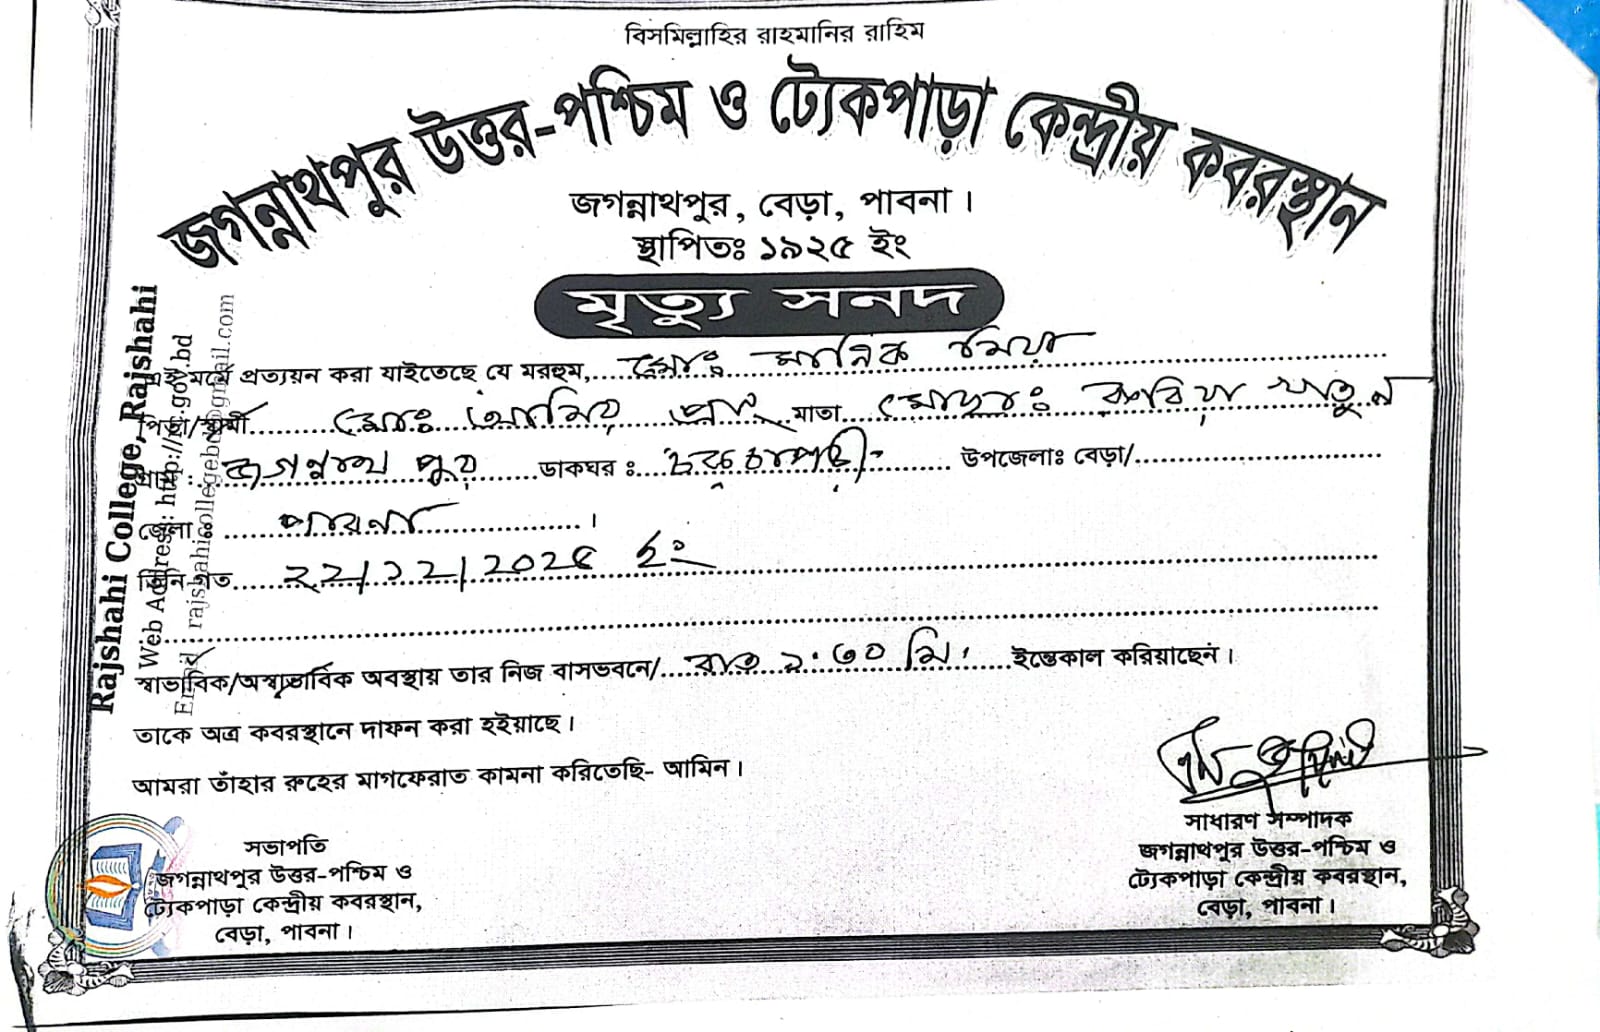 বিসমিল্লাহির রাহমানির রাহিম
জগন্নাথপুর উত্তর-পশ্চিম ও ট্যেকপাড়া কেন্দ্রীয় কবরস্থান
জগন্নাথপুর, বেড়া, পাবনা।
স্থাপিতঃ ১৯২৫ ইং
মৃত্যু সনদ
এই মর্মে প্রত্যয়ন করা যাইতেছে যে মরহুম,.... মোঃ মানিক মিয়া
পিতা/স্বামী.... মোঃ আমির প্রাং মাতা.... মোছাঃ খাতুন
গ্রাম :.... জগন্নাথ পুর .... ডাকঘর :.... .... উপজেলাঃ বেড়া/....
জেলা :.... পাবনা ....।
তিনি গত.... ২২/১২/২০২৫ ইং
স্বাভাবিক/অস্বাভাবিক অবস্থায় তার নিজ বাসভবনে/.... রাত ৯.৩০ মি. ....ইন্তেকাল করিয়াছেন।
তাকে অত্র কবরস্থানে দাফন করা হইয়াছে।
আমরা তাঁহার রুহের মাগফেরাত কামনা করিতেছি- আমিন।
সভাপতি
জগন্নাথপুর উত্তর-পশ্চিম ও
ট্যেকপাড়া কেন্দ্রীয় কবরস্থান,
বেড়া, পাবনা।
সাধারণ সম্পাদক
জগন্নাথপুর উত্তর-পশ্চিম ও
ট্যেকপাড়া কেন্দ্রীয় কবরস্থান,
বেড়া, পাবনা।
Rajshahi College, Rajshahi
Web Address: http://rc.gov.bd
Email rajshahicollegebd@gmail.com